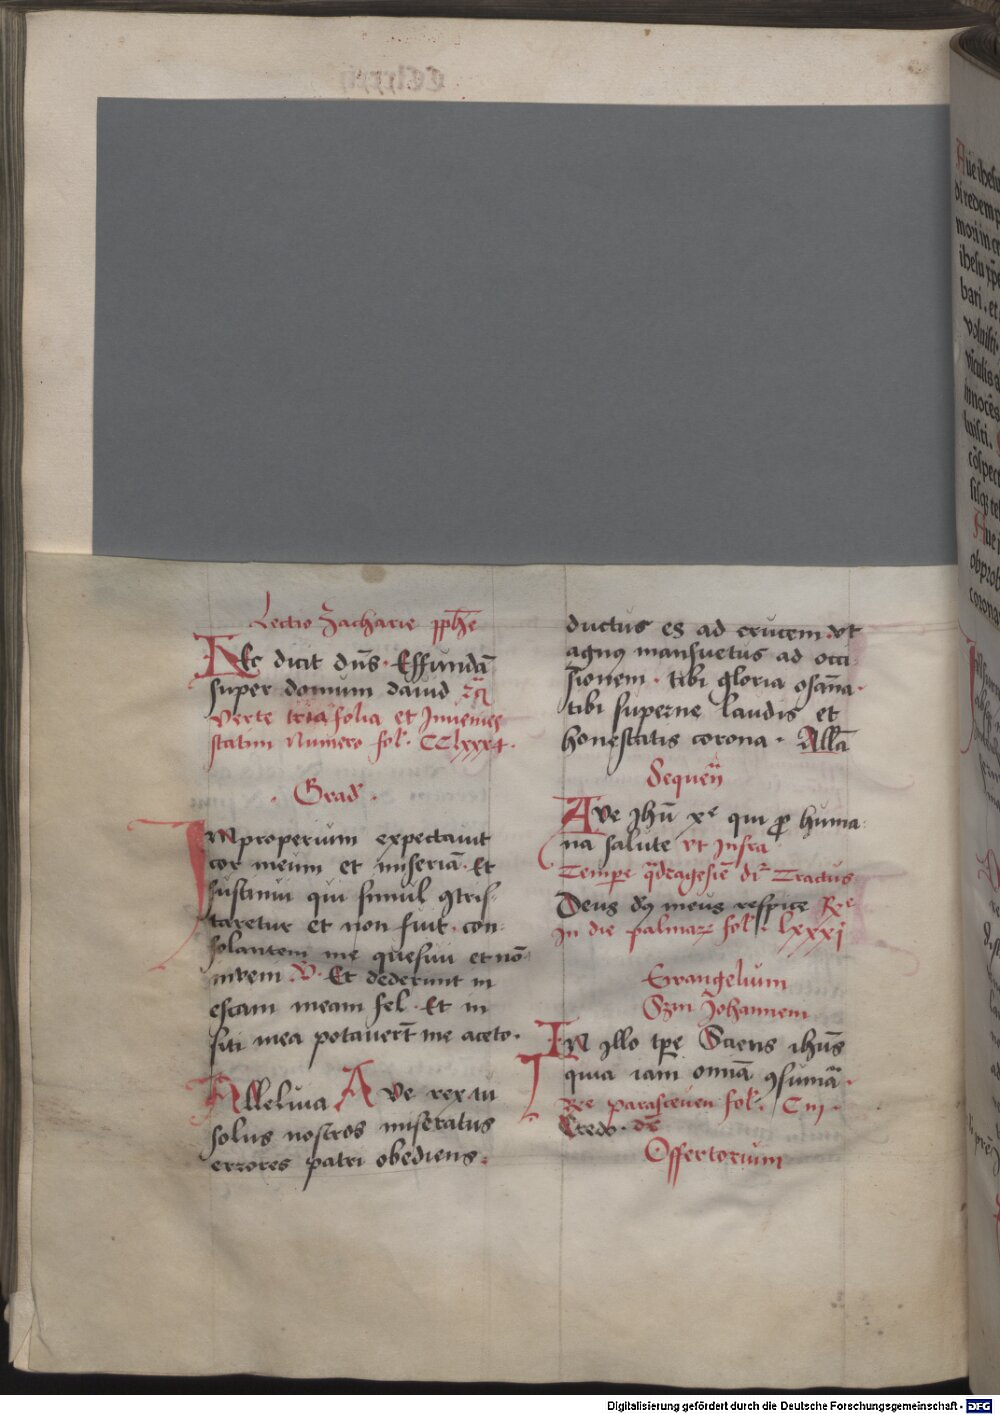 Lectio Zacharie pphē
Hec dicit dn̄s. Effundā
super domum dauid rᷓ
Verte tria folia et Inuenies
statim Numero fol. CClxxx4.
. Grad .
Improperium expectauit
cor meum et miseriā. Et
sustinui qui simul ꝯtris-
taretur et non fuit. con-
solantem me quesiui et nō
inveni V. Et dederunt in
escam meam fel. Et in
siti mea potauerūt me aceto.
Alleluia Ave rex tu
solus nostros miseratus
errores patri obediens.
ductus es ad crucem. vt
agnꝰ mansuetus ad occi
sionem. tibi gloria osāna.
tibi superne laudis et
honestatis corona. Allā
Sequen̄
Ave Jhū xe qui ꝓ huma-
na salute vt Infra
Tempe qᷓdragesie dr Tractus
Deus dꝰ meus respice Re
In die palmaꝝ fol. lxxxj
Evangelium
Scdm Johannem
In illo tꝑe Sciens ihūs
quia iam omnia ꝯsumā.
Re parasceuen fol. C iij.
Credo. dr
Offertorium
Aue ihesu
di redemp
mori in cr
ihesu xpe
bari. et
voluisti.
innocēs
luisti.
cōspect
Aue i
obprob
corona
Digitalisierung gefördert durch die Deutsche Forschungsgemeinschaft - DFG